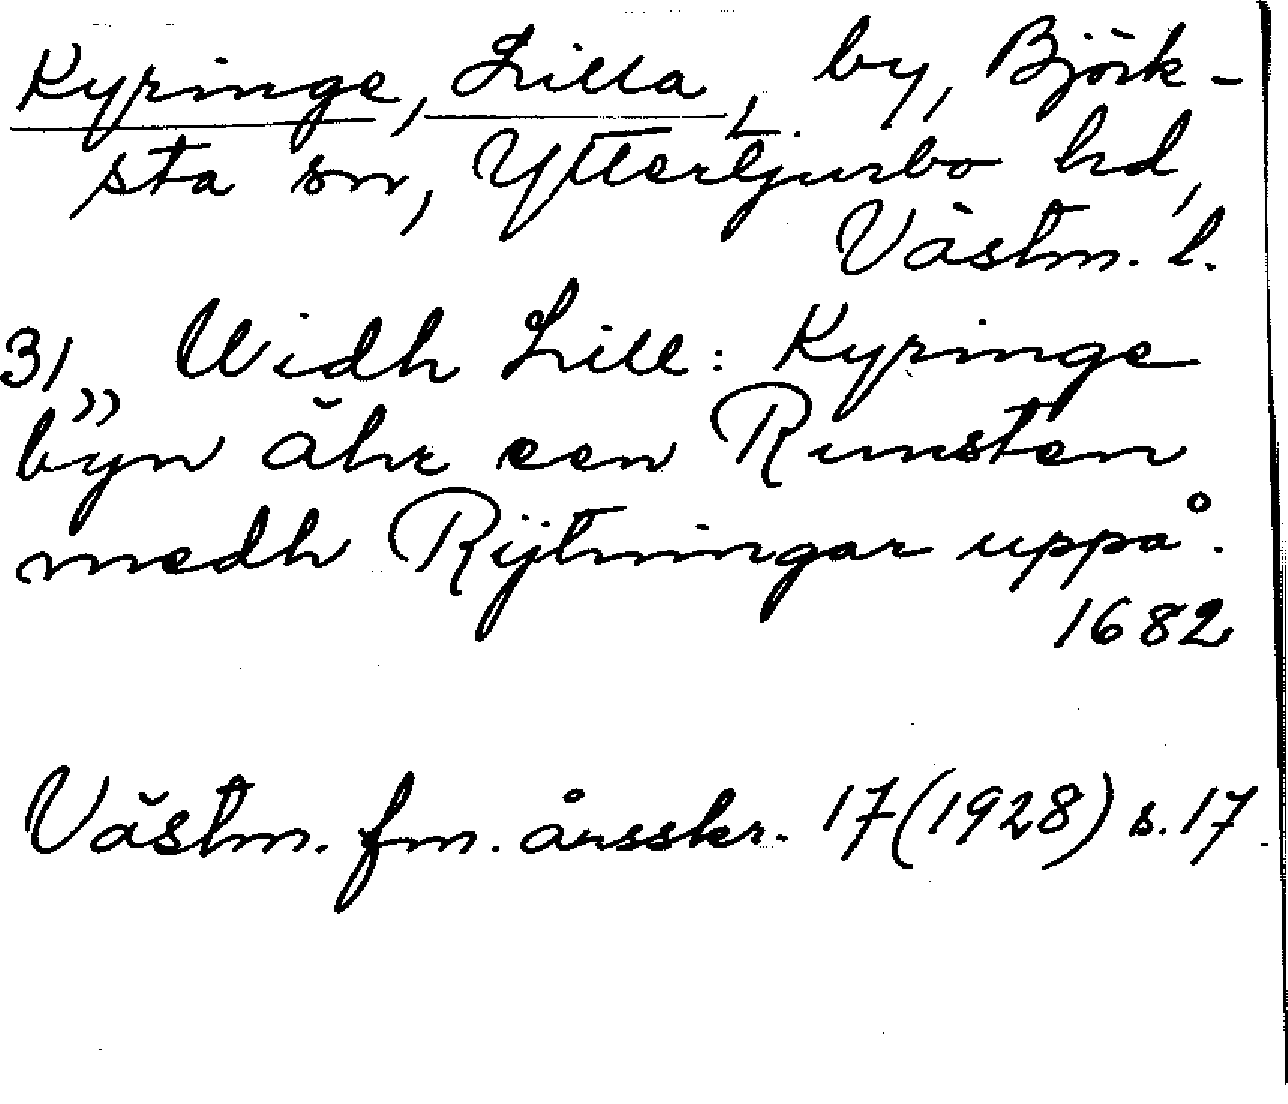 Kyringe, Lilla, by, Björk-
sta sn, Yttertjurbo hd,
Västm. l.
3) „ Widh Lill: Kyringe
byn ähr een Runsten
medh Rijtningar uppå.
1682
Västm. fm. årsskr. 17 (1928) s. 17